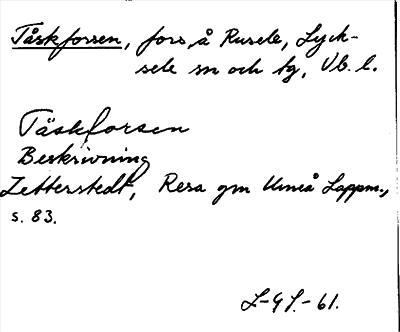 Tåskforsen, fors, å Rusele, Lyck-
sele sn och tg, Vb. l.
Täskforsen
Beskrivning
Zetterstedt, Resa gm Umeå Lappm.,
s. 83.